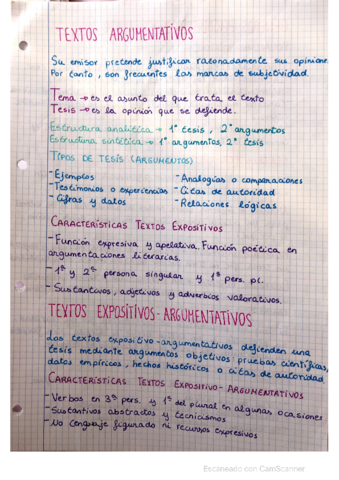 TEXTOS ARGUMENTATIVOS
Su emisor pretende justificar razonadamente sus opinione
Por tanto, son frecuentes las marcas de subjetividad.
Tema → es el asunto del que trata el texto
Tesis → es la opinión que se defiende.
Estructura analítica → 1º tesis, 2º argumentos
Estructura sintética → 1º argumentos, 2º tesis
TIPOS DE TESIS (ARGUMENTOS)
- Ejemplos
- Testimonios o experiencias
- Cifras y datos
- Analogías o comparaciones
- Citas de autoridad
- Relaciones lógicas
CARACTERÍSTICAS TEXTOS EXPOSITIVOS
- Función expresiva y apelativa. Función poética en
argumentaciones literarias.
- 1ª y 2ª persona singular y 1ª pers. pl.
- Sustantivos, adjetivos y adverbios valorativos.
TEXTOS EXPOSITIVOS-ARGUMENTATIVOS
Los textos expositivo-argumentativos defienden una
tesis mediante argumentos objetivos: pruebas científicas,
datos empíricos, hechos históricos o citas de autoridad
CARACTERÍSTICAS TEXTOS EXPOSITIVO-ARGUMENTATIVOS
- Verbos en 3ª pers. y 1ª del plural en algunas ocasiones
- Sustantivos abstractos y tecnicismos
- No lenguaje figurado ni recursos expresivos
Escaneado con CamScanner